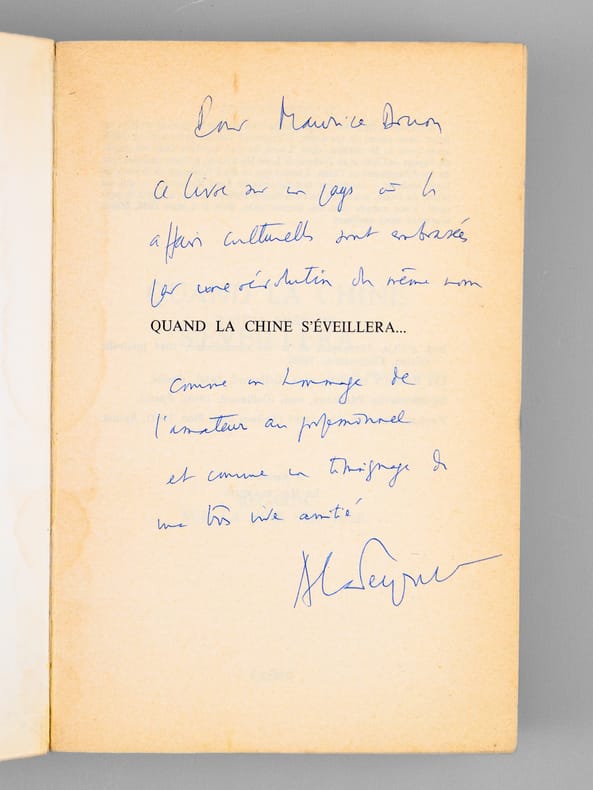 Pour Maurice Druon
ce livre sur un pays où les
affaires culturelles sont embrasées
par une révolution du même nom
QUAND LA CHINE S'ÉVEILLERA...
comme un hommage de
l'amateur au professionnel
et comme un témoignage de
ma très vive amitié